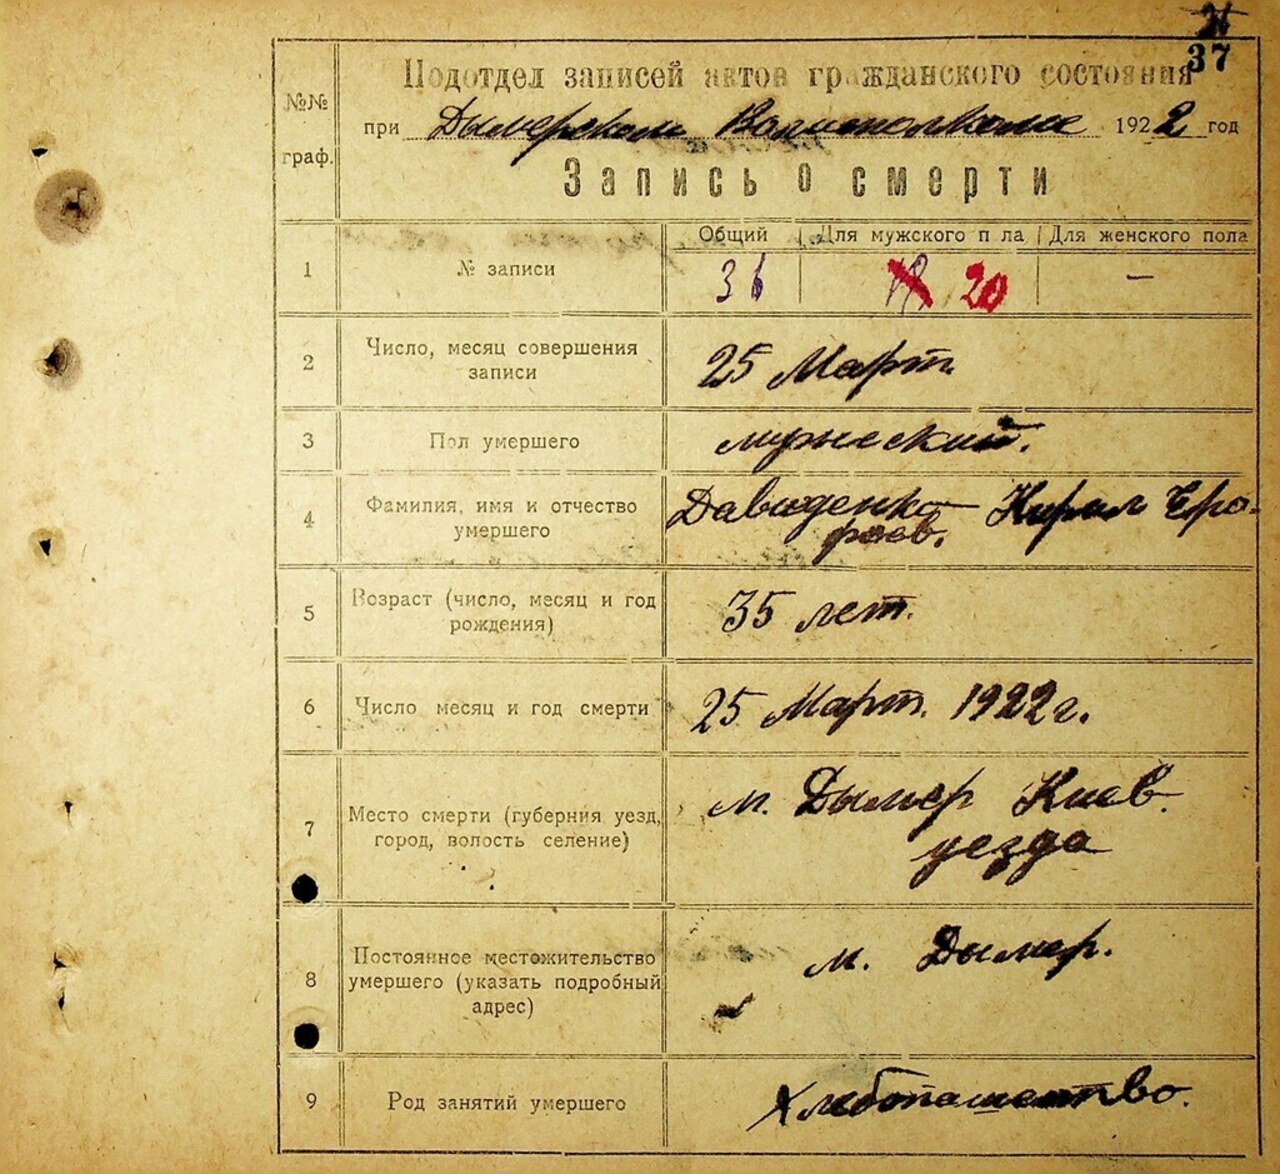 37
№№ граф.
Подотдел записей актов гражданского состояния
при Дымерском Волисполкоме 1922 год
Запись о смерти
Общий Для мужского п ла Для женского пола
1 № записи 36 19 20 —
2 Число, месяц совершения записи
25 Март.
3 Пол умершего мужеский.
4 Фамилия, имя и отчество умершего
Давиденко Кирил Еро-
феев.
5 Возраст (число, месяц и год рождения)
35 лет.
6 Число месяц и год смерти 25 Март. 1922 г.
7 Место смерти (губерния уезд, город, волость селение)
м. Дымер Киев.
уезда
8 Постоянное местожительство умершего (указать подробный адрес)
м. Дымер.
9 Род занятий умершего Хлебопашество.